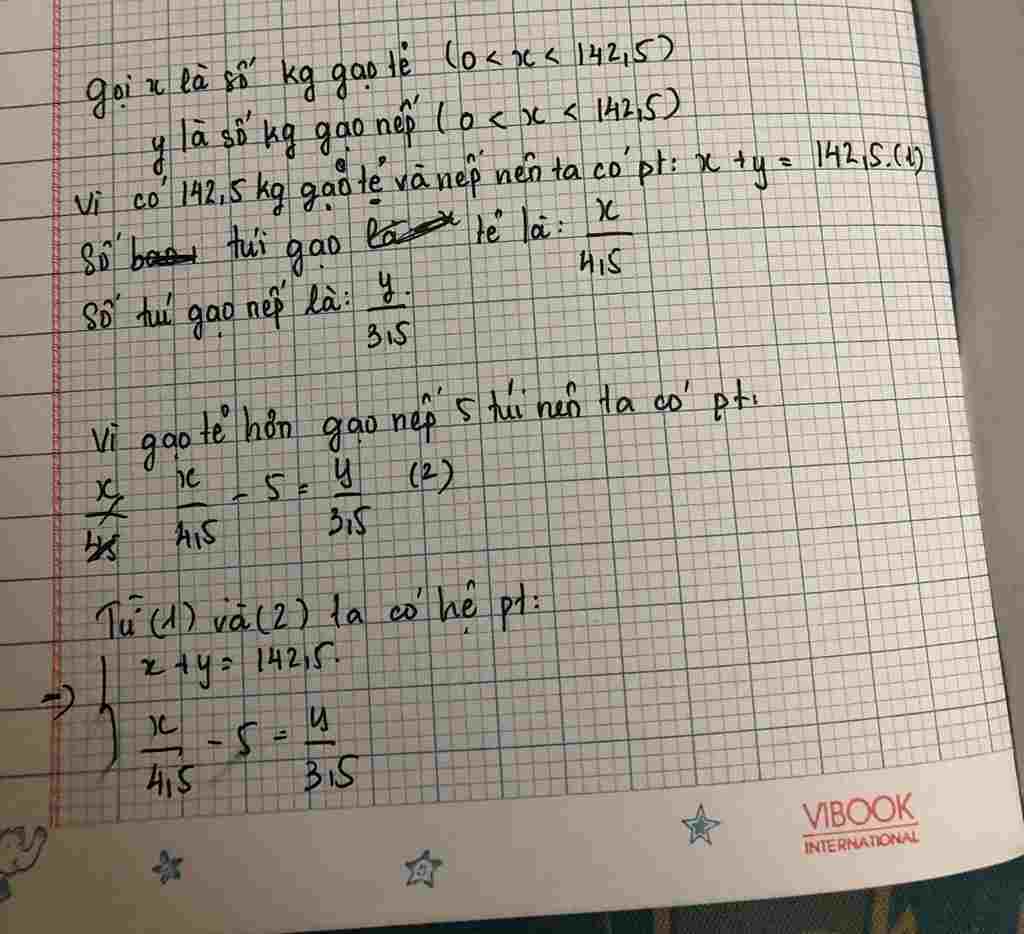 Gọi x là số kg gạo tẻ (0 < x < 142,5)
y là số kg gạo nếp (0 < x < 142,5)
Vì có 142,5 kg gạo tẻ và nếp nên ta có pt: x + y = 142,5.(1)
Số túi gạo tẻ là: x/4,5
Số túi gạo nếp là: y/3,5
Vì gạo tẻ hơn gạo nếp 5 túi nên ta có pt:
x/4,5 - 5 = y/3,5 (2)
Từ (1) và (2) ta có hệ pt:
=> { x + y = 142,5.
x/4,5 - 5 = y/3,5
VIBOOK
INTERNATIONAL